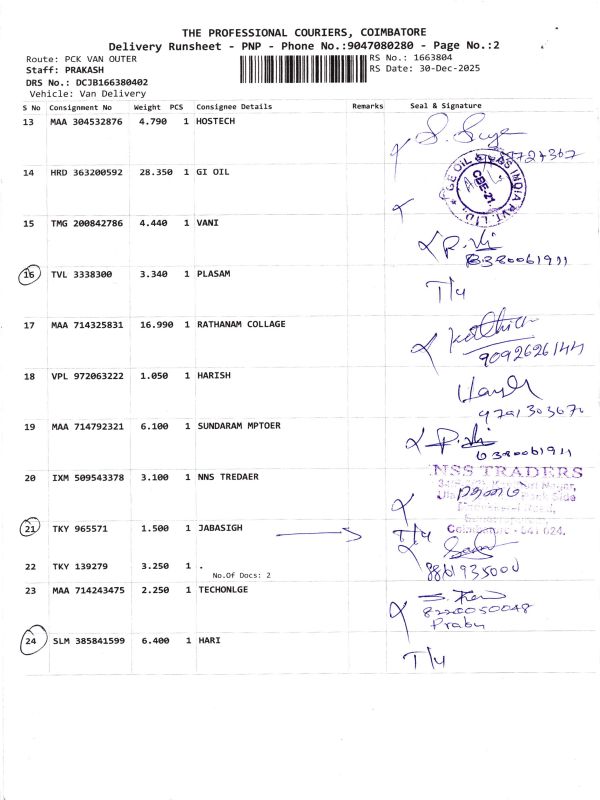 THE PROFESSIONAL COURIERS, COIMBATORE
Delivery Runsheet - PNP - Phone No.:9047080280 - Page No.:2
Route: PCK VAN OUTER
RS No.: 1663804
Staff: PRAKASH
RS Date: 30-Dec-2025
DRS No.: DCJB166380402
Vehicle: Van Delivery
S No Consignment No Weight PCS Consignee Details Remarks Seal & Signature
13 MAA 304532876 4.790 1 HOSTECH
14 HRD 363200592 28.350 1 GI OIL
CBE-21.
15 TMG 200842786 4.440 1 VANI
8380061911
16 TVL 3338300 3.340 1 PLASAM
T/4
17 MAA 714325831 16.990 1 RATHANAM COLLAGE
9092626144
18 VPL 972063222 1.050 1 HARISH
19 MAA 714792321 6.100 1 SUNDARAM MPTOER
20 IXM 509543378 3.100 1 NNS TREDAER
NSS TRADERS
Coimbatore - 641 024.
21 TKY 965571 1.500 1 JABASIGH
T/4
22 TKY 139279 3.250 1 .
No.Of Docs: 2
23 MAA 714243475 2.250 1 TECHONLGE
8220050048
Prabu
24 SLM 385841599 6.400 1 HARI
T/4